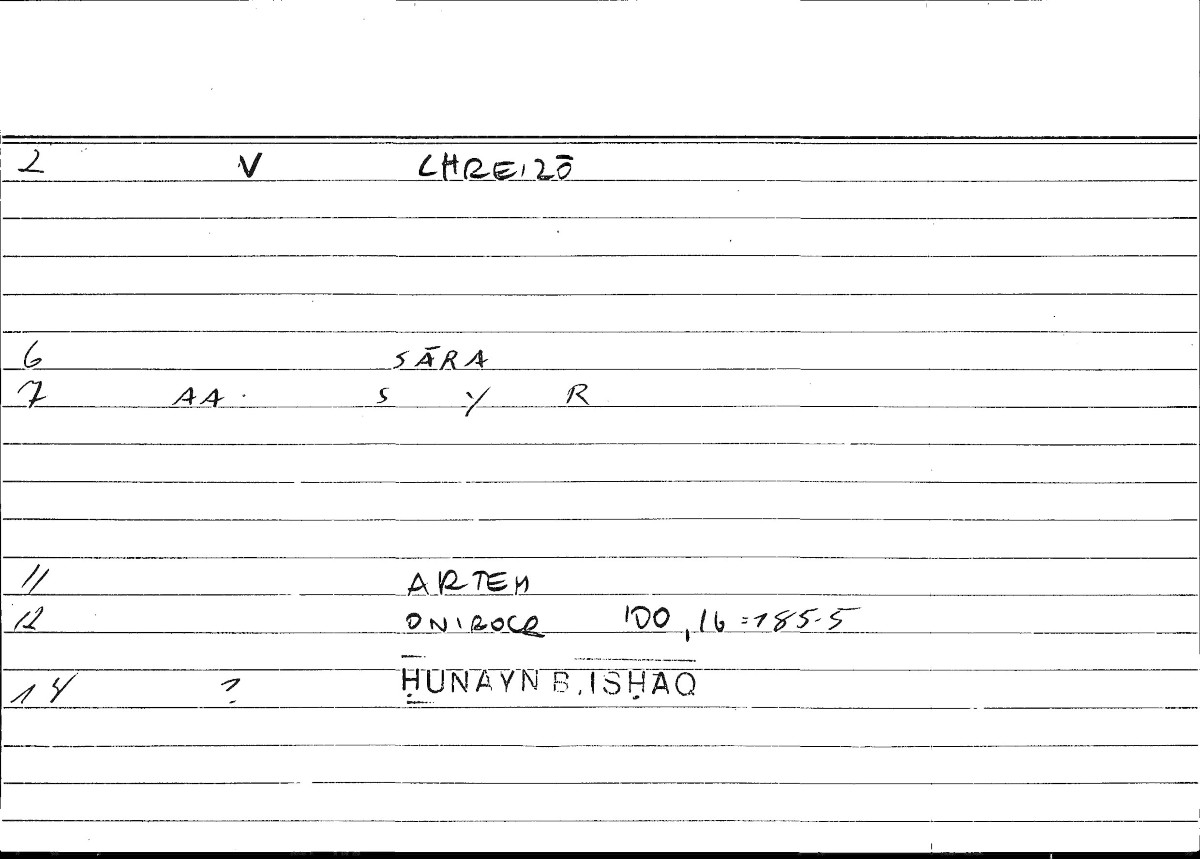 2 V CHREIZŌ
6 SĀRA
7 AA. S Y R
11 ARTEM
12 ONIROCR 100,16=185.5
14 ? ḤUNAYN B. ISḤAQ